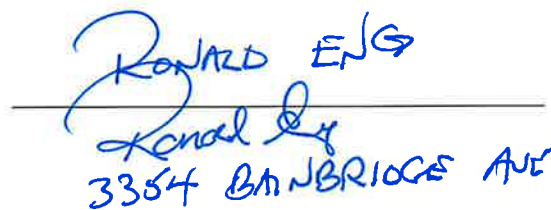 RONALD ENG
Ronald Eng
3354 BAINBRIDGE AVE